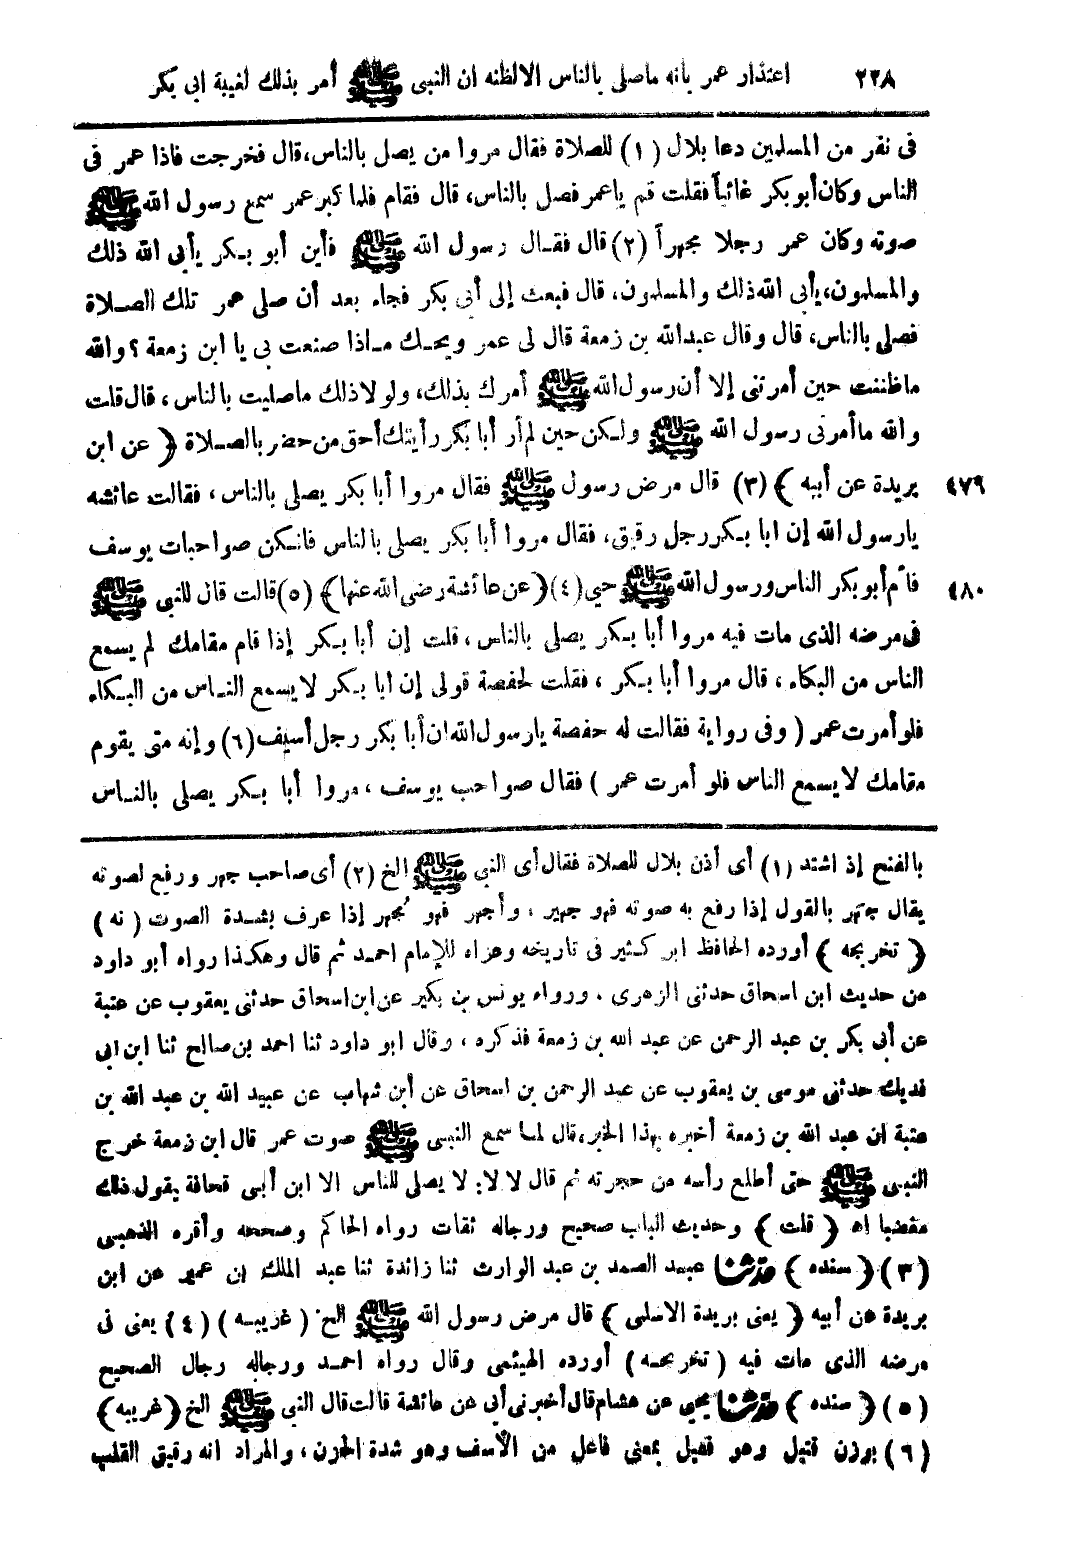 ٢٢٨ اعتذار عمر بانه ماصلى بالناس الا لظنه ان النبى ﷺ أمر بذلك لغيبة ابى بكر
فى نفر من المسلمين دعا بلال (١) للصلاة فقال مروا من يصل بالناس، قال فخرجت فاذا عمر فى
الناس وكان أبو بكر غائباً فقلت قم ياعمر فصل بالناس، قال فقام فلما كبر عمر سمع رسول الله ﷺ
صوته وكان عمر رجلا مجهراً (٢) قال فقـال رسول الله ﷺ فأين أبو بـكر يأبى الله ذلك
والمسلمون، يأبى الله ذلك والمسلمون، قال فبعث إلى أبى بكر فجاء بعد أن صلى عمر تلك الصـلاة
فصلى بالناس، قال وقال عبدالله بن زمعة قال لى عمر ويحـك مـاذا صنعت بى يا ابن زمعة ؟ والله
ماظننت حين أمرتنى إلا أن رسول الله ﷺ أمرك بذلك، ولولا ذلك ماصليت بالناس، قال قلت
والله ما أمرنى رسول الله ﷺ ولـكن حين لم أر أبا بكر رأيتك أحق من حضر بالصـلاة ﴿ عن ابن
٤٧٩ بريدة عن أبيه ﴾ (٣) قال مرض رسول ﷺ فقال مروا أبا بكر يصلى بالناس، فقالت عائشه
يارسول الله إن ابا بـكر رجل رقيق، فقال مروا أبا بكر يصلى بالناس فانـكن صواحبات يوسف
٤٨٠ فأم أبو بكر الناس ورسول الله ﷺ حي (٤) ﴿ عن عائشة رضى الله عنها ﴾ (٥) قالت قال للنبى ﷺ
فى مرضه الذى مات فيه مروا أبا بـكر يصلى بالناس، قلت إن أبا بـكر إذا قام مقامك لم يسمع
الناس من البكاء، قال مروا أبا بـكر، فقلت لحفصة قولى إن ابا بـكر لا يسمع النـاس من البـكاء
فلو أمرت عمر ( وفى رواية فقالت له حفصة يارسول الله ان أبا بكر رجل أسيف (٦) وإنه متى يقوم
مقامك لا يسمع الناس فلو أمرت عمر ) فقال صواحب يوسف، مروا أبا بـكر يصلى بالنـاس
بالفتح إذ اشتد (١) أى أذن بلال للصلاة فقال أى النبى ﷺ الخ (٢) أى صاحب جهر ورفع لصوته
يقال جهر بالقول إذا رفع به صوته فهو جهير، وأجهر فهو مُجهر إذا عرف بشـدة الصوت ( نه )
﴿ تخريجه ﴾ أورده الحافظ ابن كـثير فى تاريخه وعزاه للإمام احمـد ثم قال وهكـذا رواه أبو داود
من حديث ابن اسحاق حدثنى الزهرى، ورواه يونس بن بكير عن ابن اسحاق حدثنى يعقوب عن عتبة
عن أبى بكر بن عبد الرحمن عن عبد الله بن زمعة فذكره، وقال ابو داود ثنا احمد بن صالح ثنا ابن ابى
فديك حدثنى موسى بن يعقوب عن عبد الرحمن بن اسحاق عن أبن شهاب عن عبيد الله بن عبد الله بن
عتبة ان عبد الله بن زمعة أخبره بهذا الخبر، قال لمـا سمع النبى ﷺ صوت عمر قال ابن زمعة خرج
النبى ﷺ حتى أطلع رأسه من حجرته ثم قال لا لا لا يصلى للناس الا ابن أبى قحافة يقول ذلك
مغضبا اه ﴿ قلت ﴾ وحديث الباب صحيح ورجاله ثقات رواه الحاكم وصححه وأقره الذهبى
(٣) ﴿ سنده ﴾ حدثنا عبد الصمد بن عبد الوارث ثنا زائدة ثنا عبد الملك بن عمير عن ابن
بريدة عن أبيه ﴿ يعنى بريدة الاسلمى ﴾ قال مرض رسول الله ﷺ الخ ( غريبـه ) (٤) يعنى فى
مرضه الذى مات فيه ( تخريجـه ) أورده الهيثمى وقال رواه احمـد ورجاله رجال الصحيح
(٥) ﴿ سنده ﴾ حدثنا يحيى عن هشام قال أخبرنى أبى عن عائشة قالت قال النبى ﷺ الخ ﴿ غريبه ﴾
(٦) بوزن قتيل وهو فعيل بمعنى فاعل من الأسف وهو شدة الحزن، والمراد انه رقيق القلب